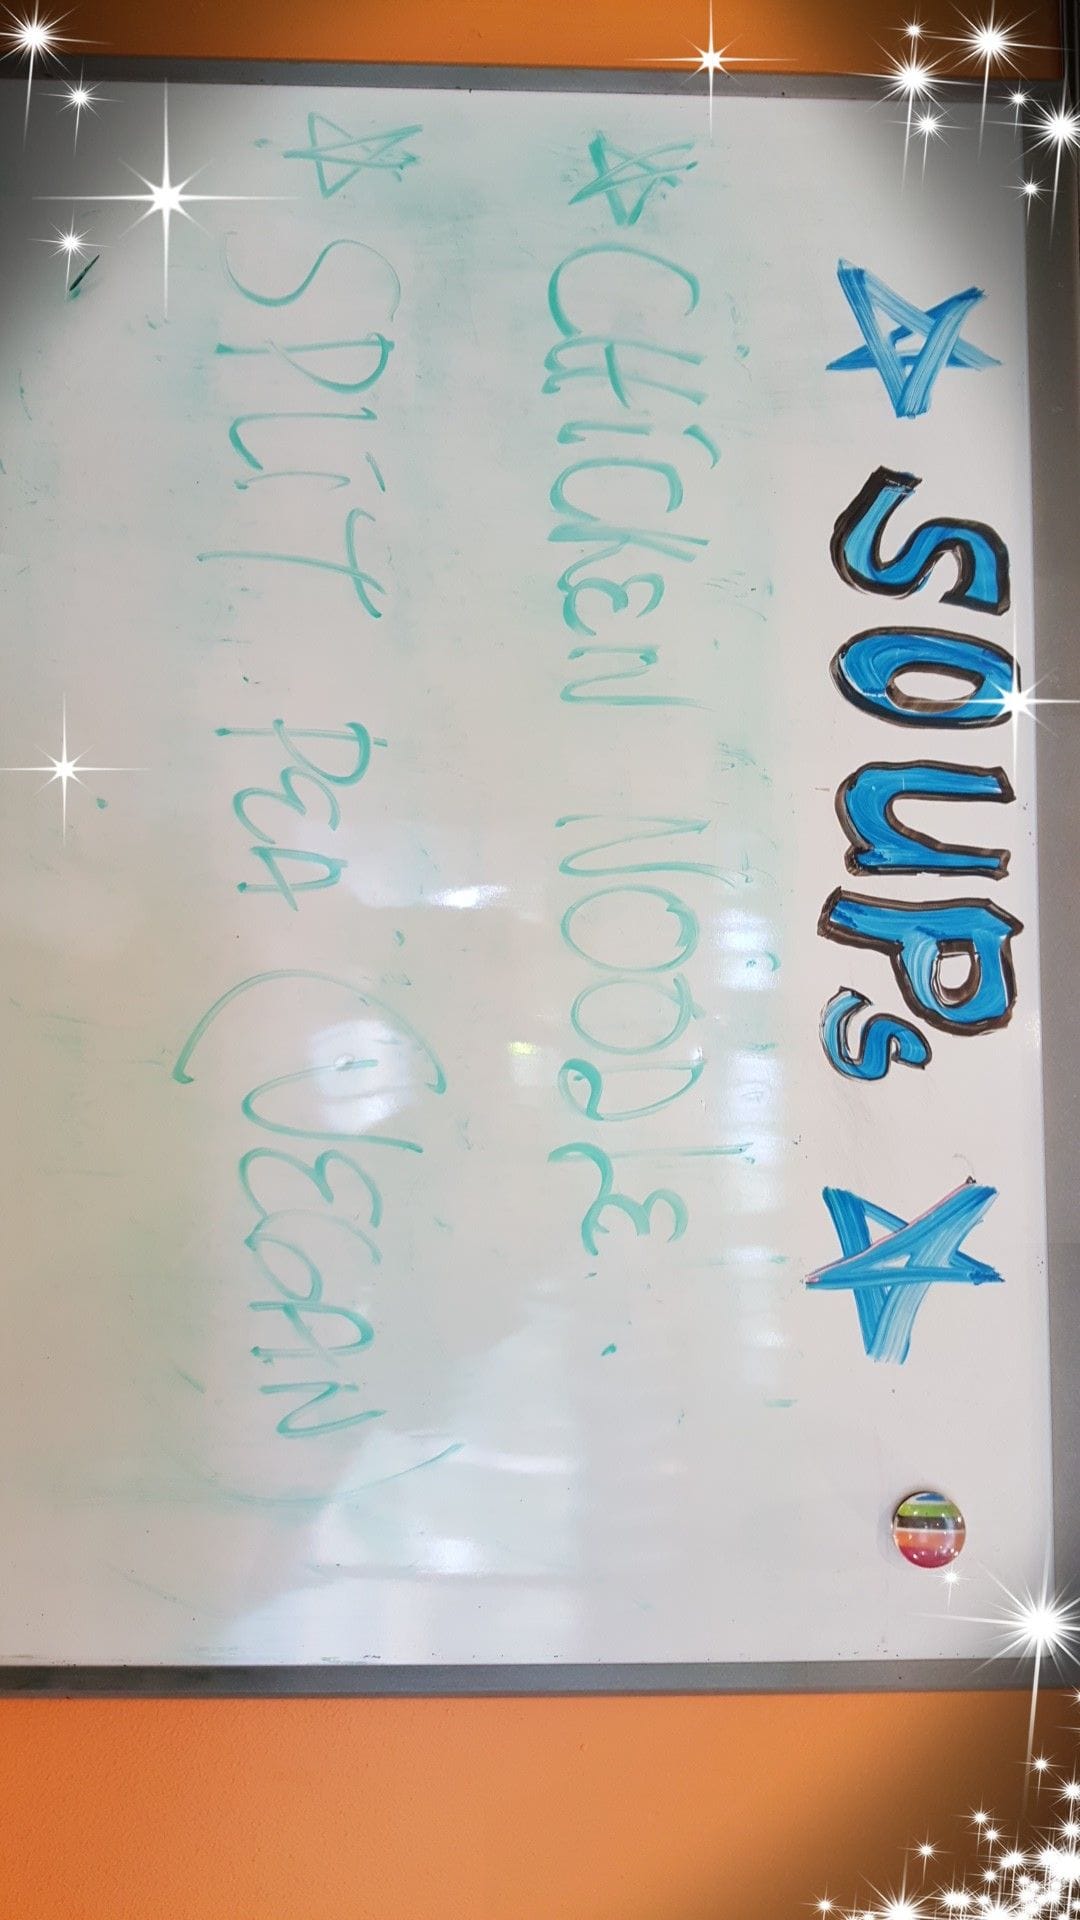 SOUPS
CHICKEN NOODLE
SPLIT PEA (VEGAN)